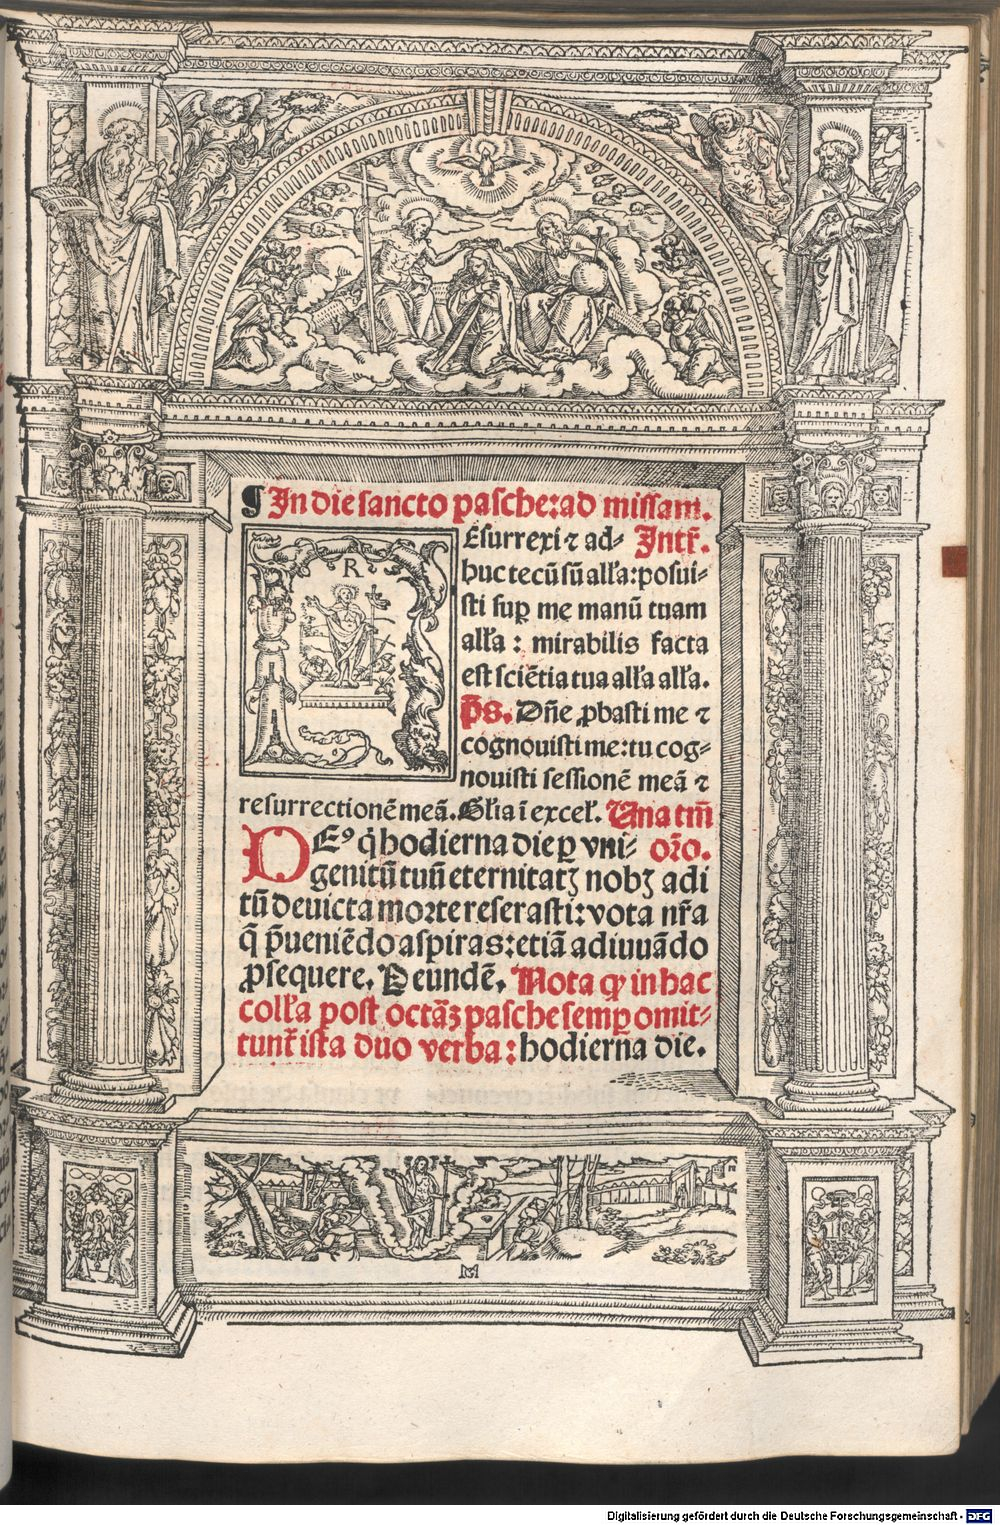 ¶ In die sancto pasche: ad missam.
Esurrexi ⁊ ad- Intr̄.
huc tecū sū alľa: posui-
sti suꝑ me manū tuam
alľa : mirabilis facta
est sciētia tua alľa alľa.
p̄s. Dn̄e ꝓbasti me ⁊
cognouisti me: tu cog-
nouisti sessionē meā ⁊
resurrectionē meā. Gľia ī excelľ. Una tm̄
DEꝰ q̇ hodierna die ꝑ vni- oꝛo.
genitū tuū eternitatꝫ nobꝫ adi
tū deuicta moꝛte reserasti: vota nr̄a
q̄ p̄ueniēdo aspiras: etiā adiuuādo
ꝓsequere. Per eundē. Nota ꝙ in hac
collľa post octāꝫ pasche semꝑ omit-
tunt̄ ista duo verba: hodierna die.
R
Digitalisierung gefördert durch die Deutsche Forschungsgemeinschaft - DFG